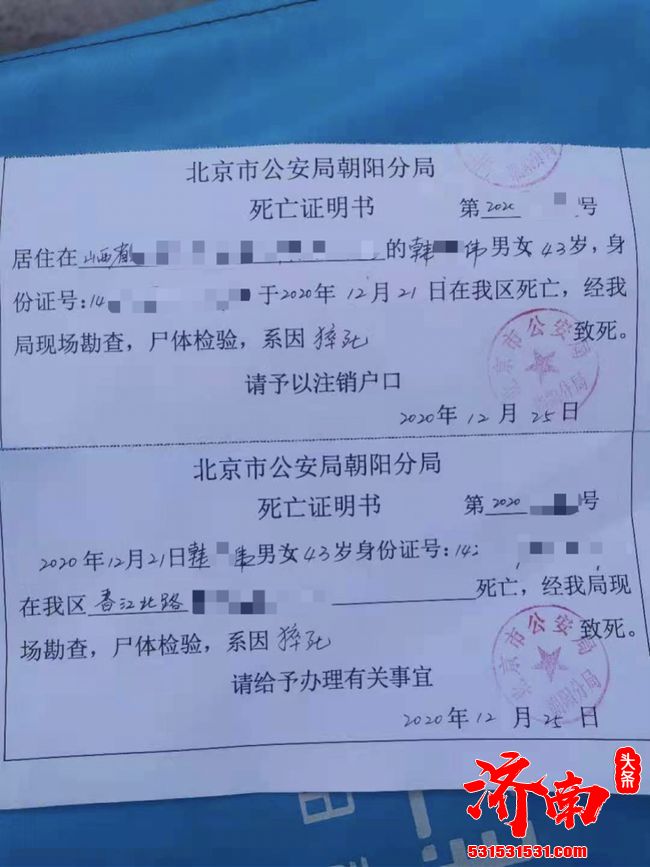 北京市公安局朝阳分局
死亡证明书 第2020 号
居住在山西省 的韩 伟男女43岁，身
份证号：14 于2020年12月21日在我区死亡，经我
局现场勘查，尸体检验，系因 猝死 致死。
请予以注销户口
北京市公安局
2020年12月25日
北京市公安局朝阳分局
死亡证明书 第2020 号
2020年12月21日韩 伟男女43岁身份证号：142
在我区香江北路 死亡，经我局现
场勘查，尸体检验，系因 猝死 致死。
请给予办理有关事宜
北京市公安局
朝阳分局
2020年12月25日
济南
头条
531531531.com